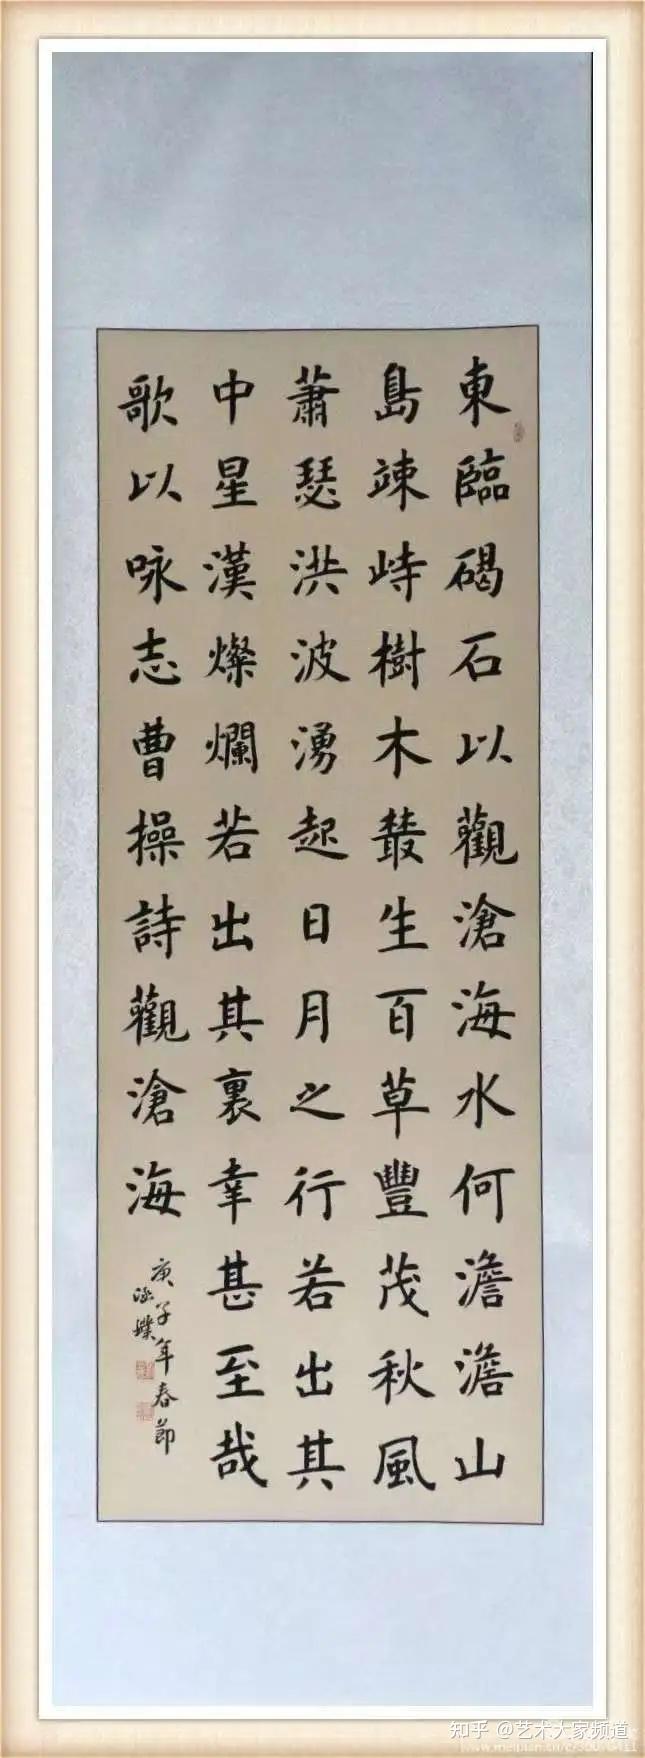 東臨碣石以觀滄海水何澹澹山
島竦峙樹木叢生百草豐茂秋風
蕭瑟洪波湧起日月之行若出其
中星漢燦爛若出其裏幸甚至哉
歌以咏志曹操詩觀滄海
庚子年春節
知乎 @艺术大家频道